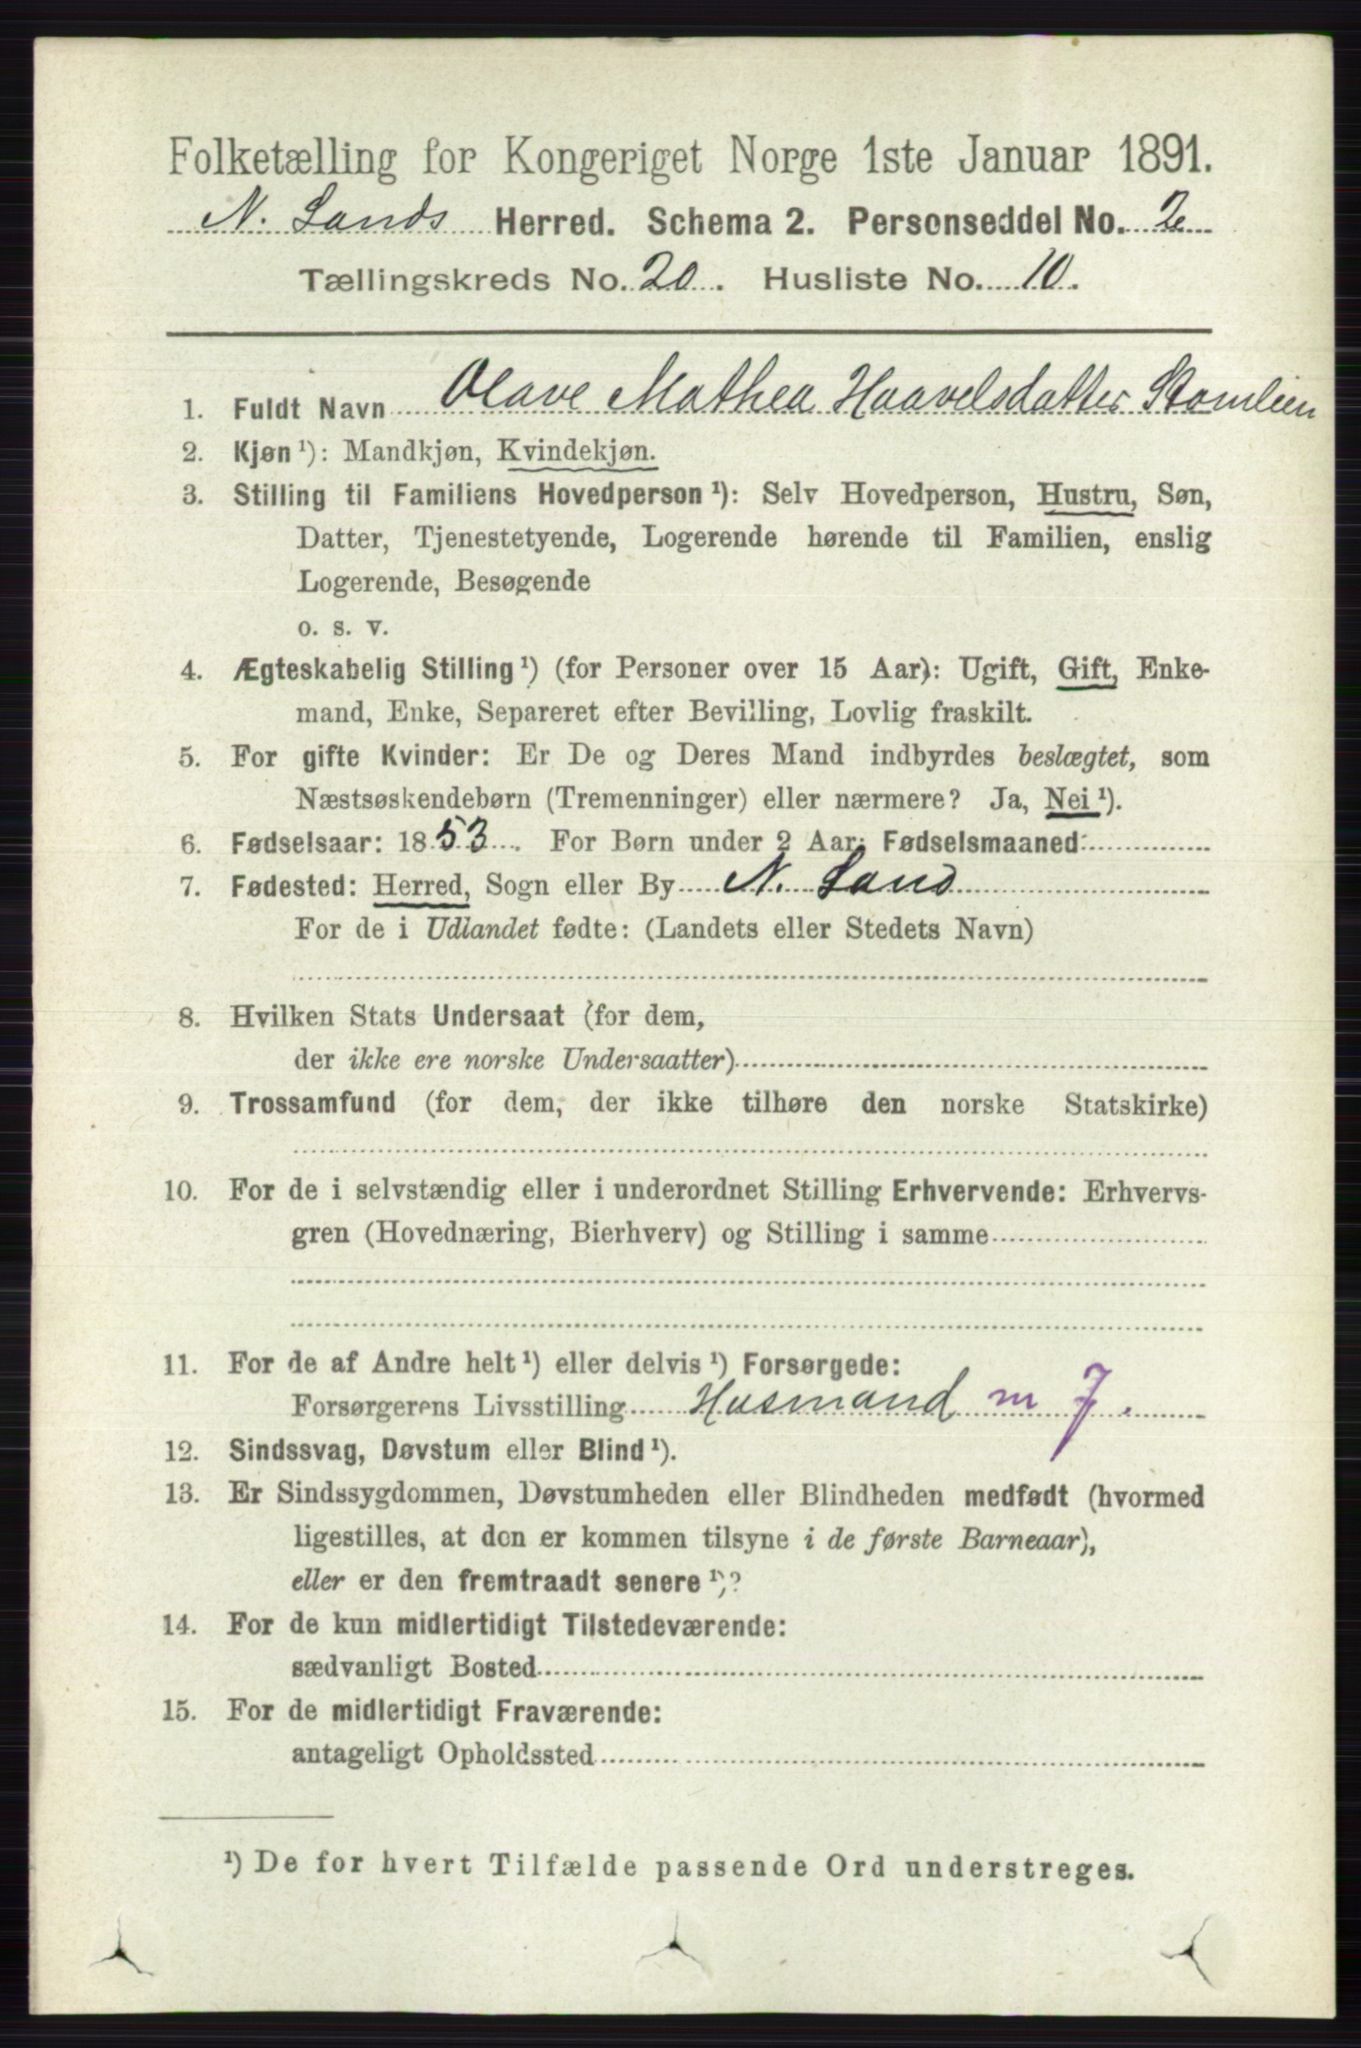 Folketælling for Kongeriget Norge 1ste Januar 1891.
N. Lands Herred. Schema 2. Personseddel No. 2
Tællingskreds No. 20. Husliste No. 10.
1. Fuldt Navn Olave Mathea Haavelsdatter Stomlien
2. Kjøn¹): Mandkjøn, Kvindekjøn.
3. Stilling til Familiens Hovedperson¹): Selv Hovedperson, Hustru, Søn,
Datter, Tjenestetyende, Logerende hørende til Familien, enslig
Logerende, Besøgende
o. s. v.
4. Ægteskabelig Stilling¹) (for Personer over 15 Aar): Ugift, Gift, Enke-
mand, Enke, Separeret efter Bevilling, Lovlig fraskilt.
5. For gifte Kvinder: Er De og Deres Mand indbyrdes beslægtet, som
Næstsøskendebørn (Tremenninger) eller nærmere? Ja, Nei¹).
6. Fødselsaar: 1853. For Børn under 2 Aar: Fødselsmaaned:
7. Fødested: Herred, Sogn eller By N. Land
For de i Udlandet fødte: (Landets eller Stedets Navn)
8. Hvilken Stats Undersaat (for dem,
der ikke ere norske Undersaatter)
9. Trossamfund (for dem, der ikke tilhøre den norske Statskirke)
10. For de i selvstændig eller i underordnet Stilling Erhvervende: Erhvervs-
gren (Hovednæring, Bierhverv) og Stilling i samme
11. For de af Andre helt¹) eller delvis¹) Forsørgede:
Forsørgerens Livsstilling Husmand m J.
12. Sindssvag, Døvstum eller Blind¹).
13. Er Sindssygdommen, Døvstumheden eller Blindheden medfødt (hvormed
ligestilles, at den er kommen tilsyne i de første Barneaar),
eller er den fremtraadt senere¹)?
14. For de kun midlertidigt Tilstedeværende:
sædvanligt Bosted
15. For de midlertidigt Fraværende:
antageligt Opholdssted
¹) De for hvert Tilfælde passende Ord understreges.